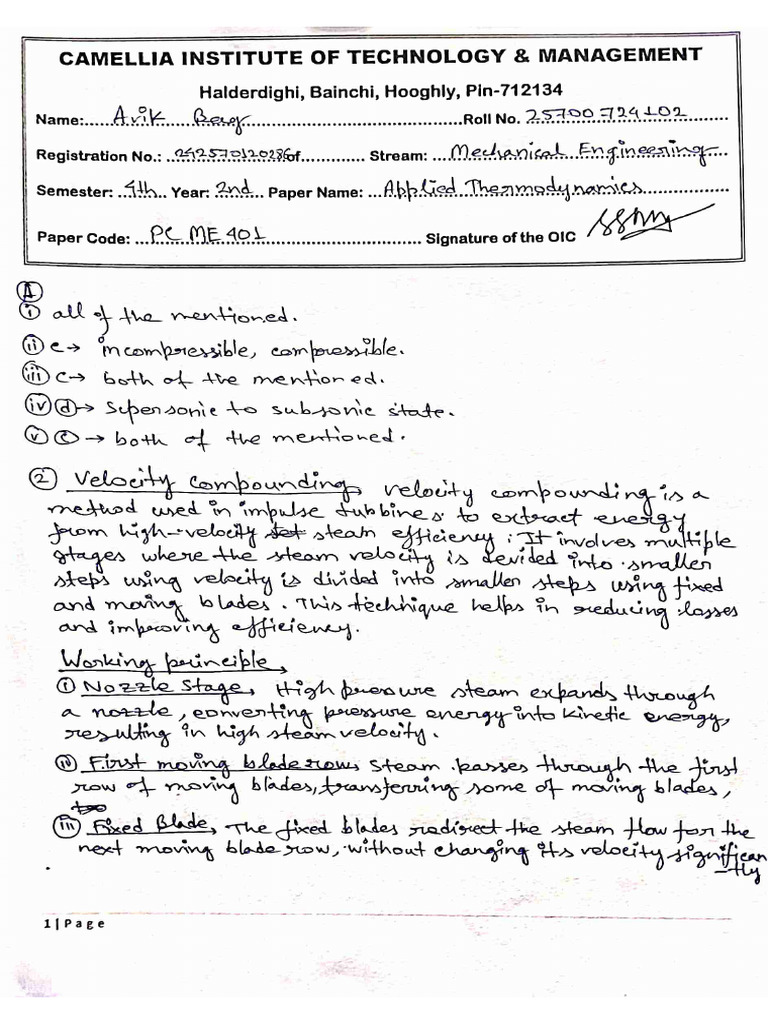 CAMELLIA INSTITUTE OF TECHNOLOGY & MANAGEMENT
Halderdighi, Bainchi, Hooghly, Pin-712134
Name:.....Avik Bag.....Roll No. 25700724102
Registration No.: 242570120286of............ Stream: Mechanical Engineering
Semester: 4th Year: 2nd Paper Name: Applied Thermodynamics
Paper Code: PC ME 401 Signature of the OIC
i) all of the mentioned.
ii) c→ incompressible, compressible.
iii) c→ both of the mentioned.
iv) d→ supersonic to subsonic state.
v) c→ both of the mentioned.
2) Velocity compounding, velocity compounding is a
method used in impulse tubbines to extract energy
from high-velocity steam efficiency: It involves multiple
stages where the steam velocity is devided into smaller
steps using velocity is divided into smaller steps using fixed
and moving blades. This technique helps in reducing losses
and improving efficiency.
Working principle,
i) Nozzle Stage, High pressure steam expands through
a nozzle, converting pressure energy into kinetic energy,
resulting in high steam velocity.
ii) First moving blade row, steam passes through the first
row of moving blades, transferring some of moving blades,
iii) Fixed Blade, The fixed blades redirect the steam flow for the
next moving blade row, without changing its velocity significan
-tly
1 | Page